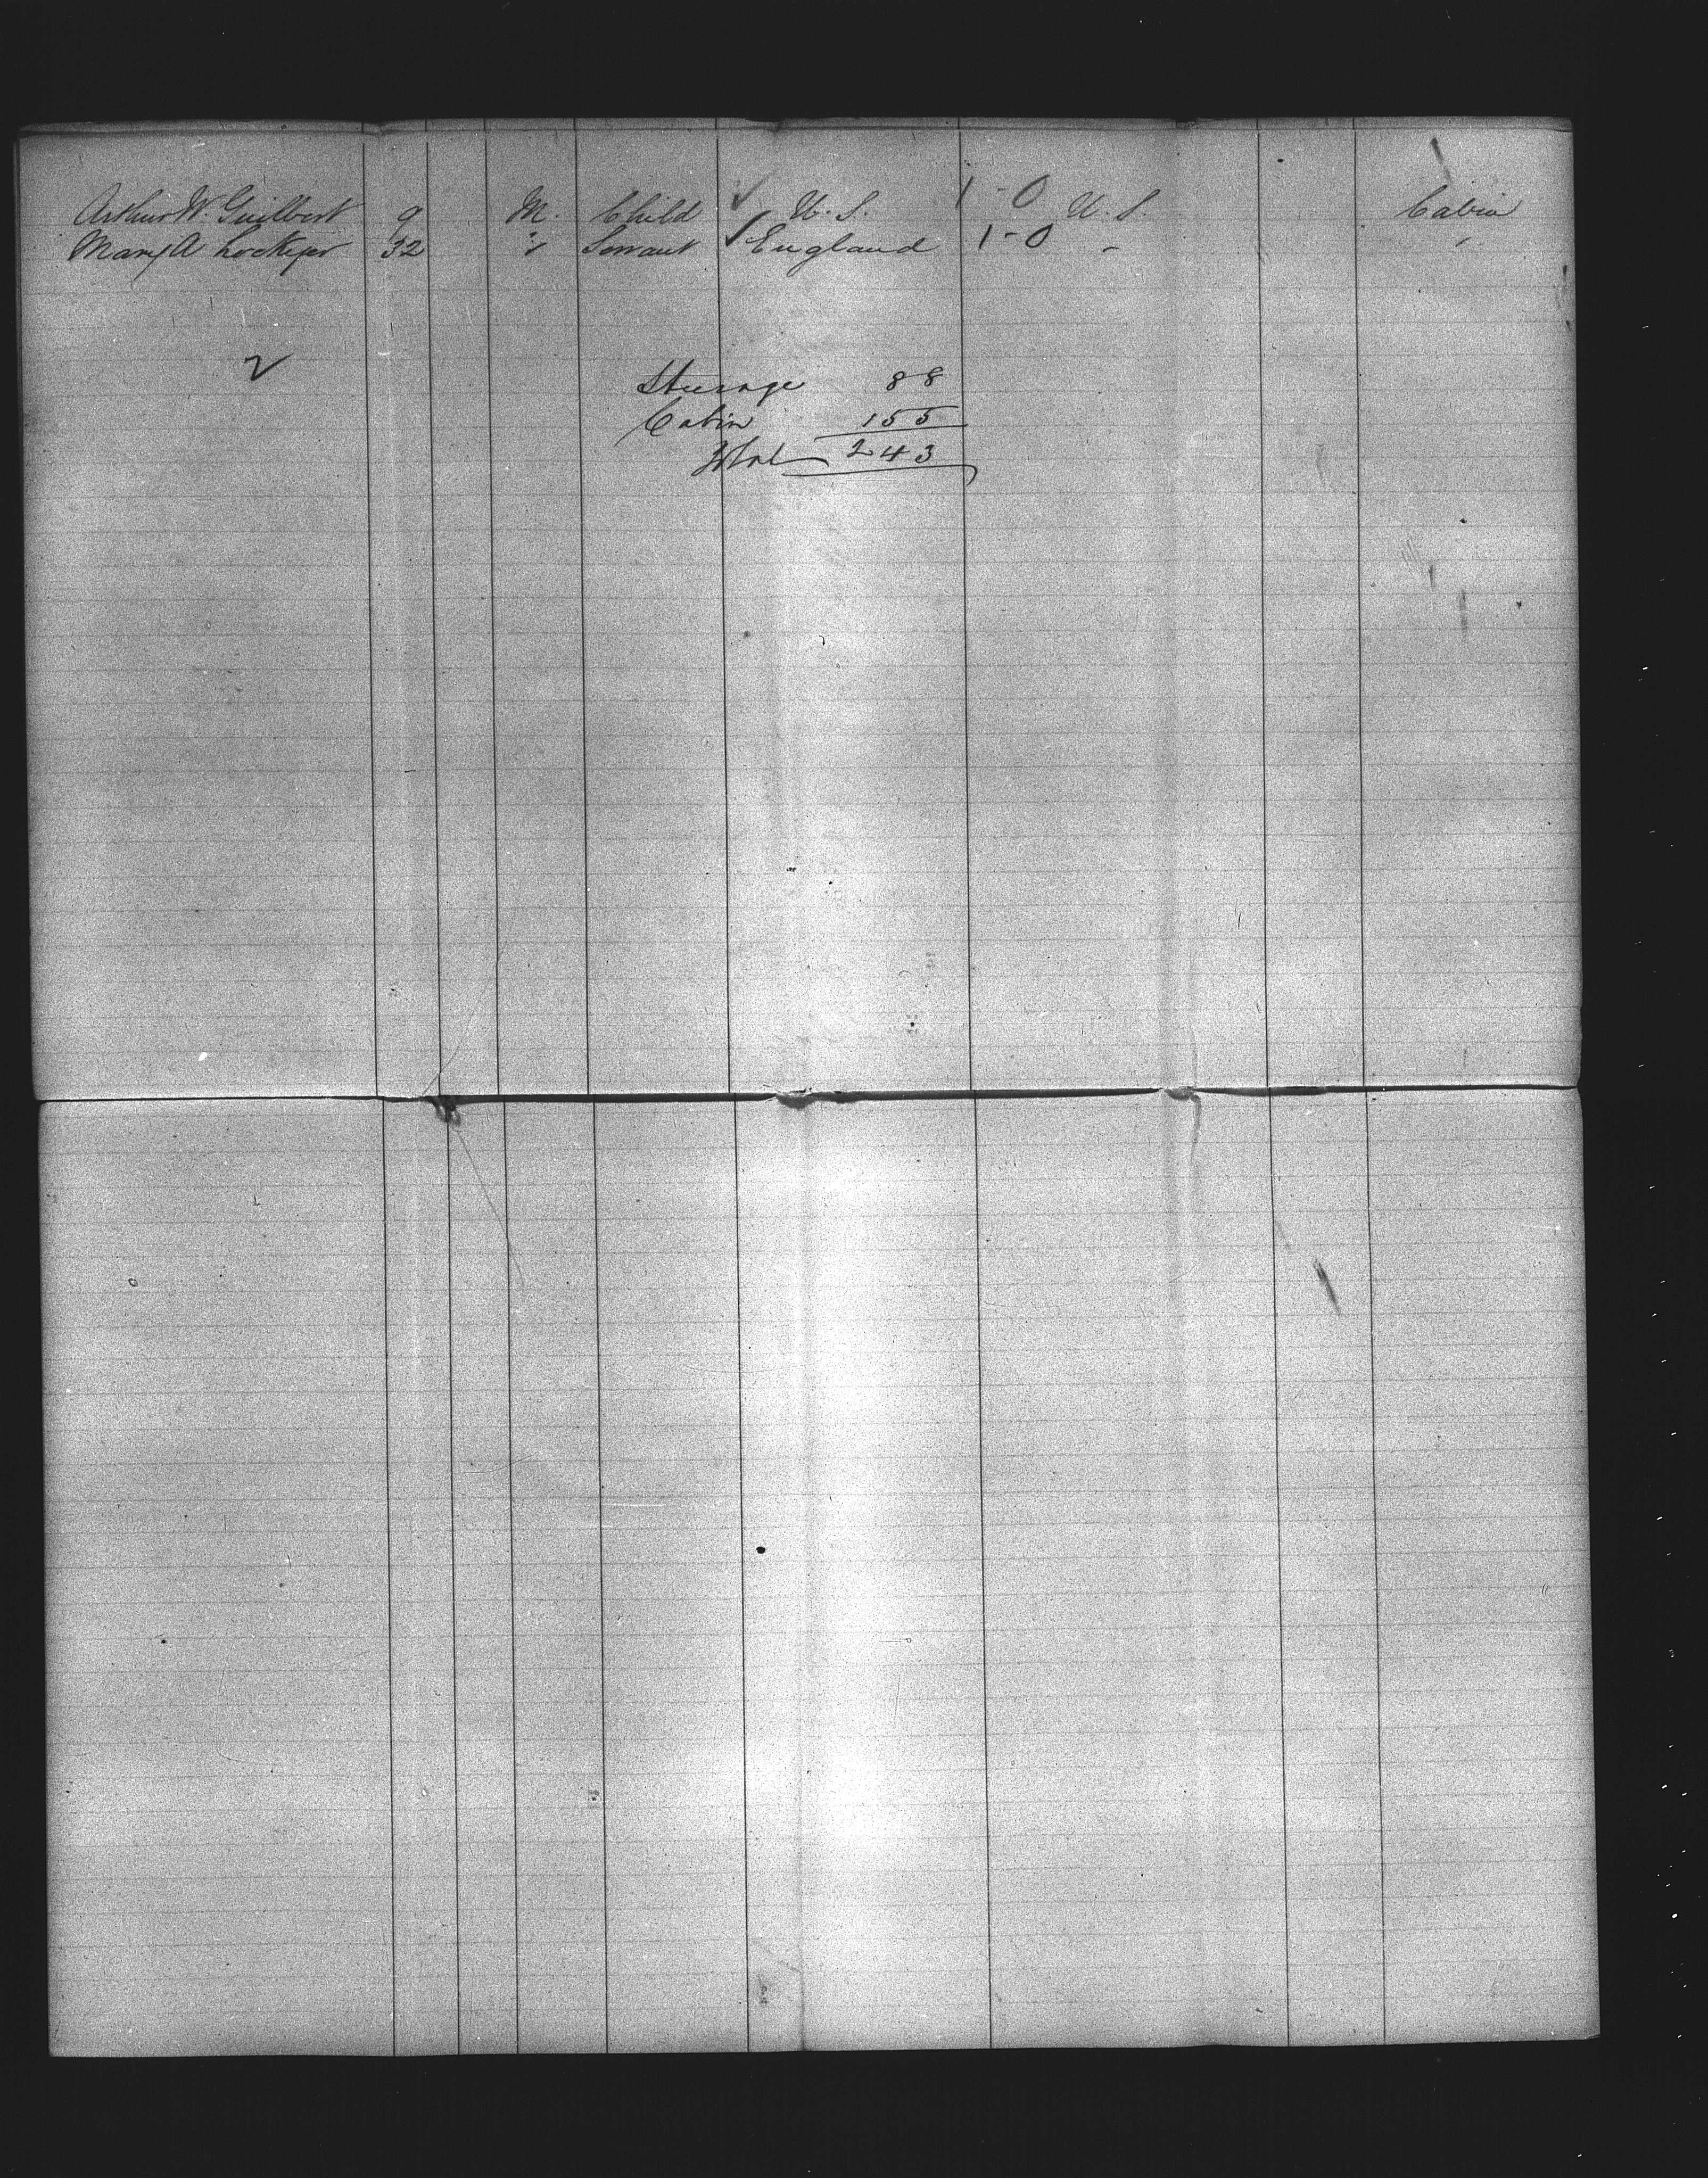 Arthur W. Guilbert 9 M. Child ✓ U. S. 1-0 U. S. Cabin
Mary A 32 " Servant ✓ England 1-0 " "
2
Steerage 88
Cabin 155
Total 243